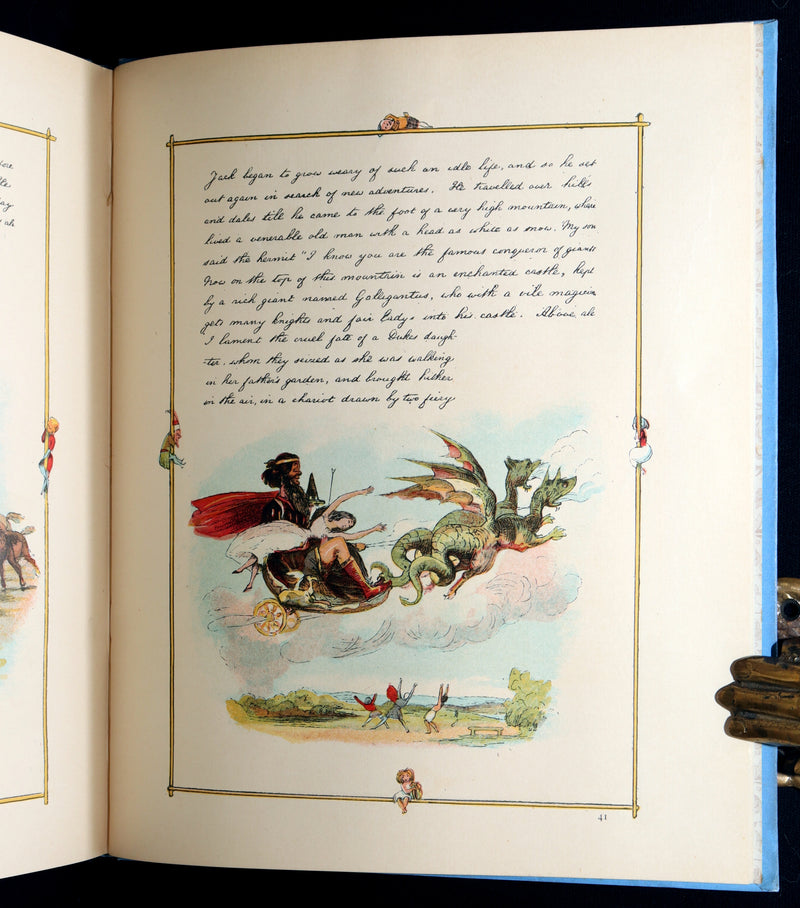 ore
tle
Jack began to grow weary of such an idle life, and so he set
out again in search of new adventures. He travelled over hills
and dales till he came to the foot of a very high mountain, where
lived a venerable old man with a head as white as snow. My son
said the hermit "I know you are the famous conqueror of giants
Now on the top of this mountain is an enchanted castle, kept
by a rich giant named Gallegantus, who with a vile magician
gets many knights and fair Ladys into his castle. Above all
I lament the cruel fate of a Dukes daugh-
ter, whom they seized as she was walking
in her father's garden, and brought hither
in the air, in a chariot drawn by two fiery
41